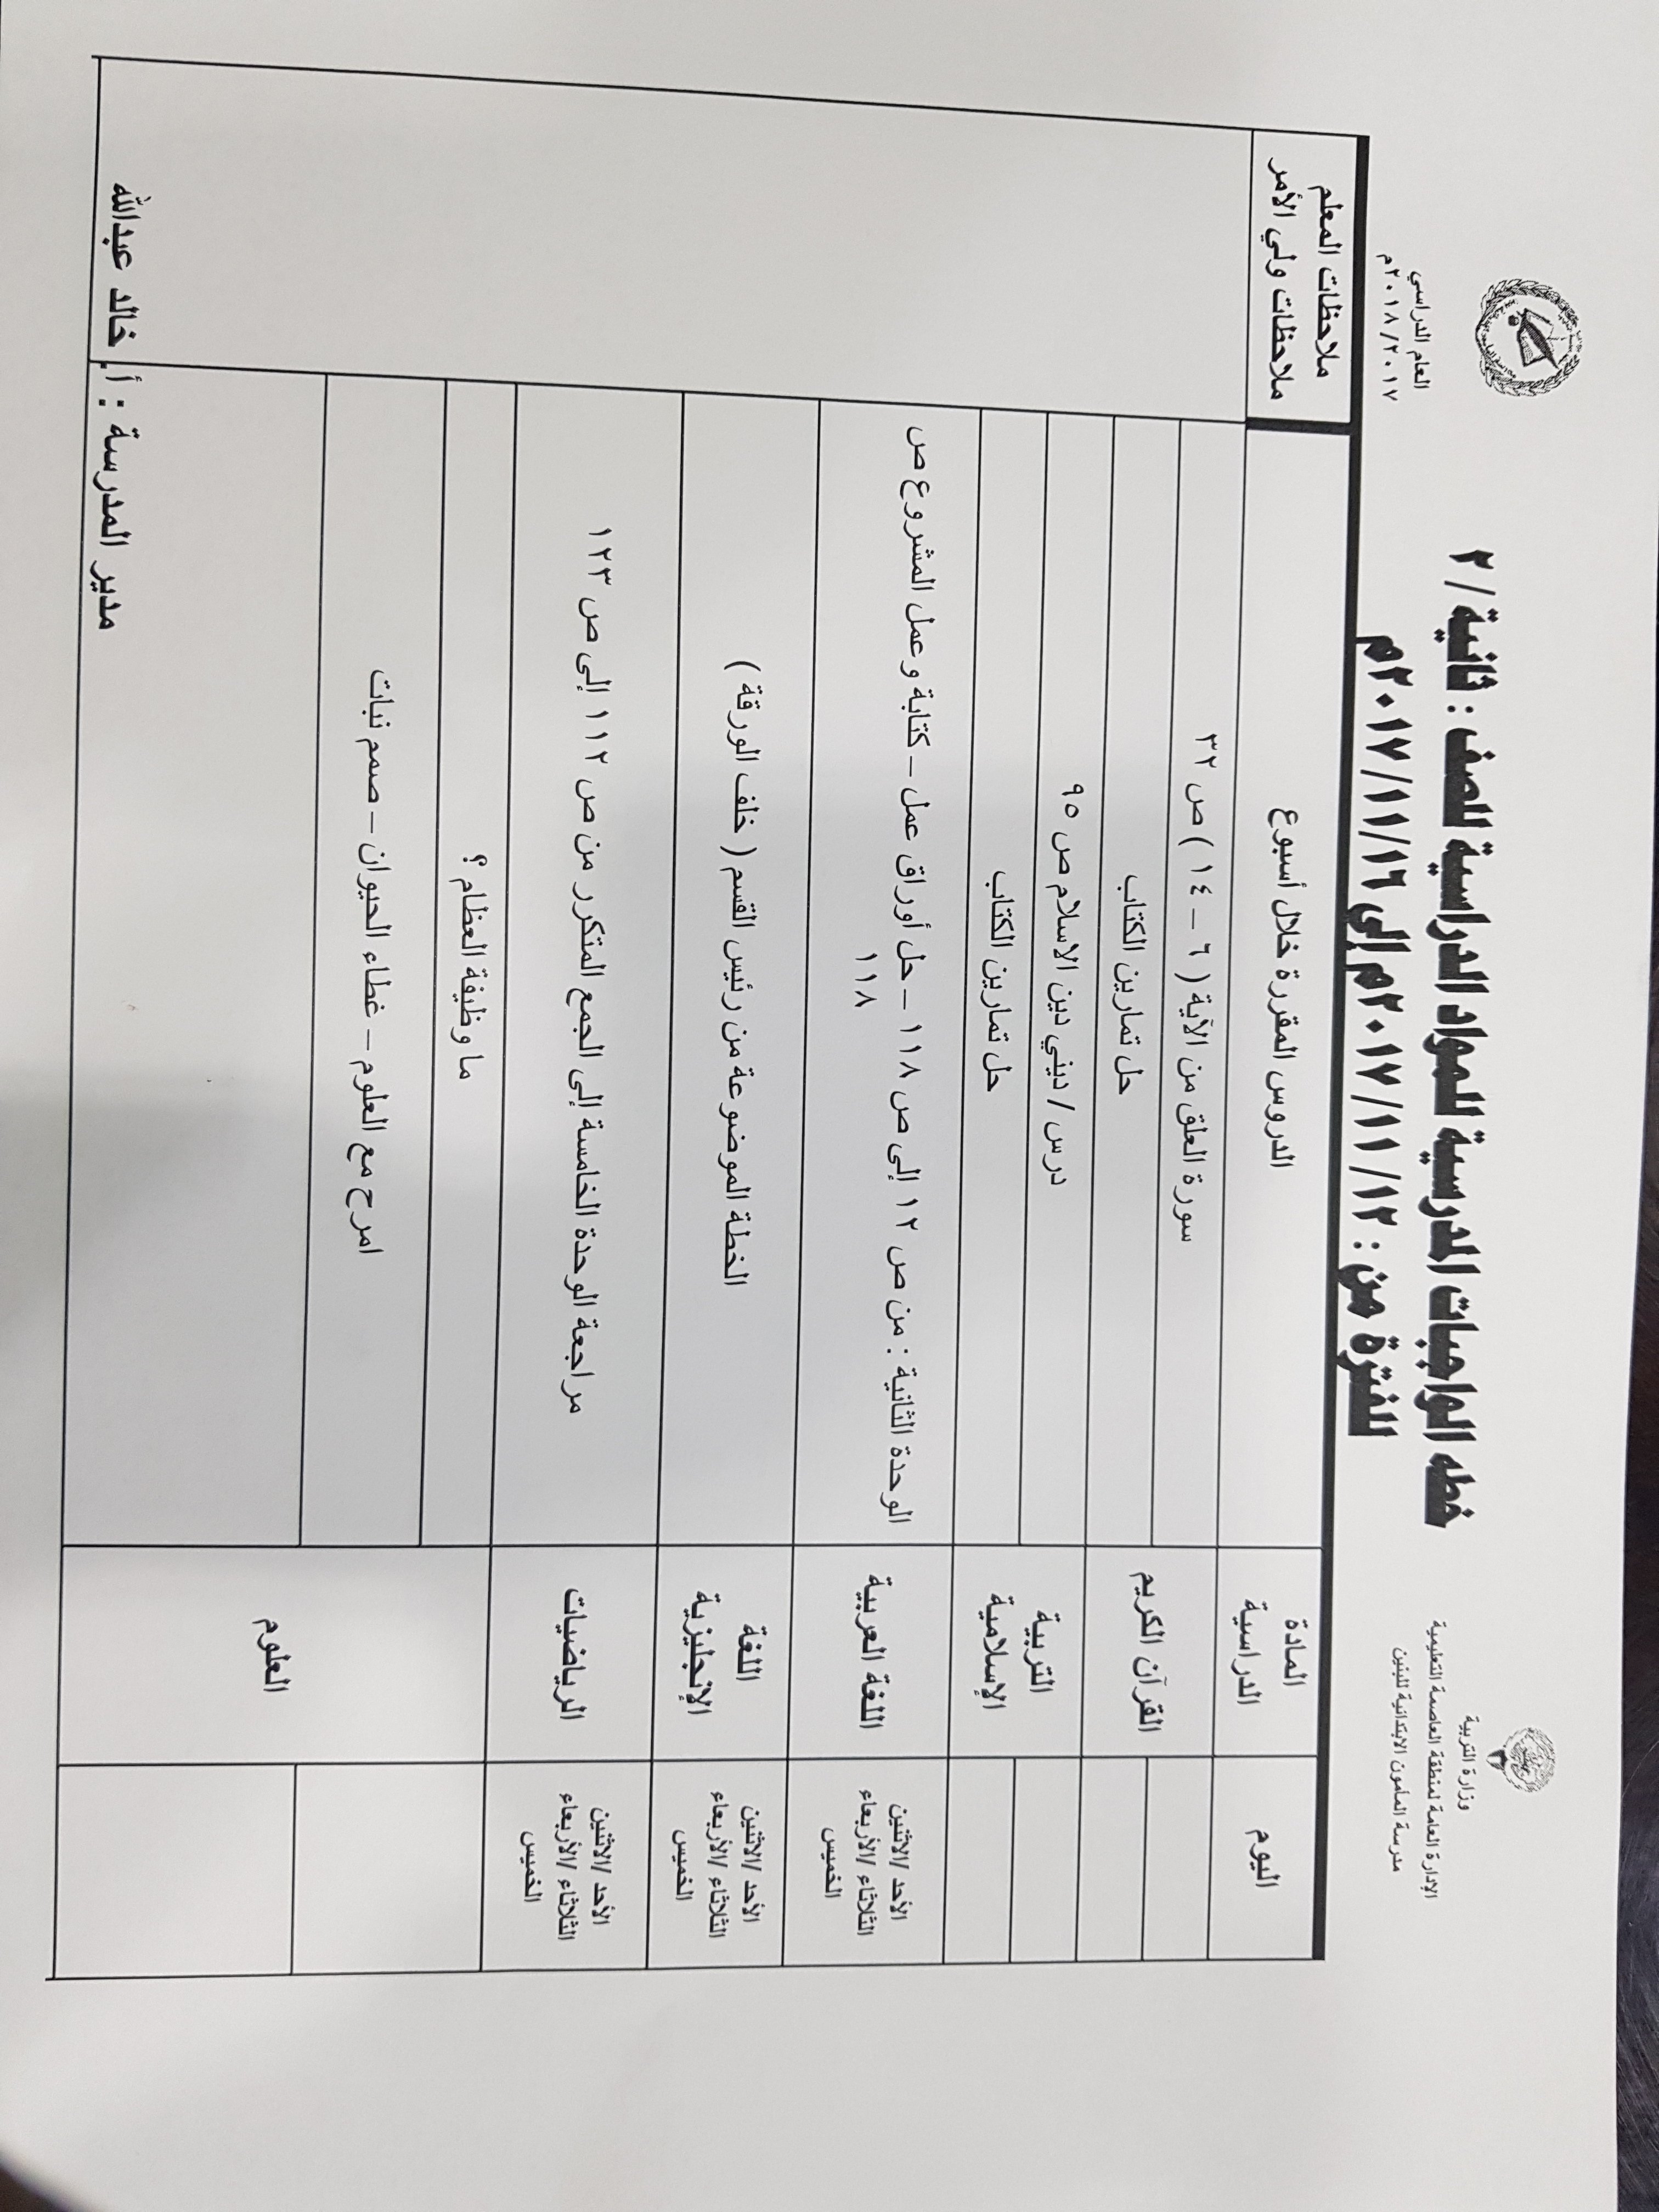 وزارة التربية
الإدارة العامة لمنطقة العاصمة التعليمية
مدرسة المأمون الابتدائية للبنين
خطه الواجبات المدرسية للمواد الدراسية للصف : ثانية / ٢
للفترة من : ٢٠١٧/١١/١٢م إلى ٢٠١٧/١١/١٦م
العام الدراسي
٢٠١٨/٢٠١٧م
اليوم
المادة
الدراسية
الدروس المقررة خلال أسبوع
ملاحظات المعلم
ملاحظات ولي الأمر
القرآن الكريم
سورة العلق من الآية ( ٦ – ١٤ ) ص ٣٢
حل تمارين الكتاب
التربية
الإسلامية
درس / ديني دين الاسلام ص ٩٥
حل تمارين الكتاب
الأحد /الاثنين
الثلاثاء /الأربعاء
الخميس
اللغة العربية
الوحدة الثانية : من ص ١٢ إلى ص ١١٨ – حل أوراق عمل – كتابة و عمل المشروع ص
١١٨
الأحد /الاثنين
الثلاثاء /الأربعاء
الخميس
اللغة
الإنجليزية
الخطة الموضوعة من رئيس القسم ( خلف الورقة )
الأحد /الاثنين
الثلاثاء /الأربعاء
الخميس
الرياضيات
مراجعة الوحدة الخامسة إلى الجمع المتكرر من ص ١١٢ إلى ص ١٢٣
العلوم
ما وظيفة العظام ؟
امرح مع العلوم – غطاء الحيوان – صمم نبات
مدير المدرسة : أ. خالد عبدالله